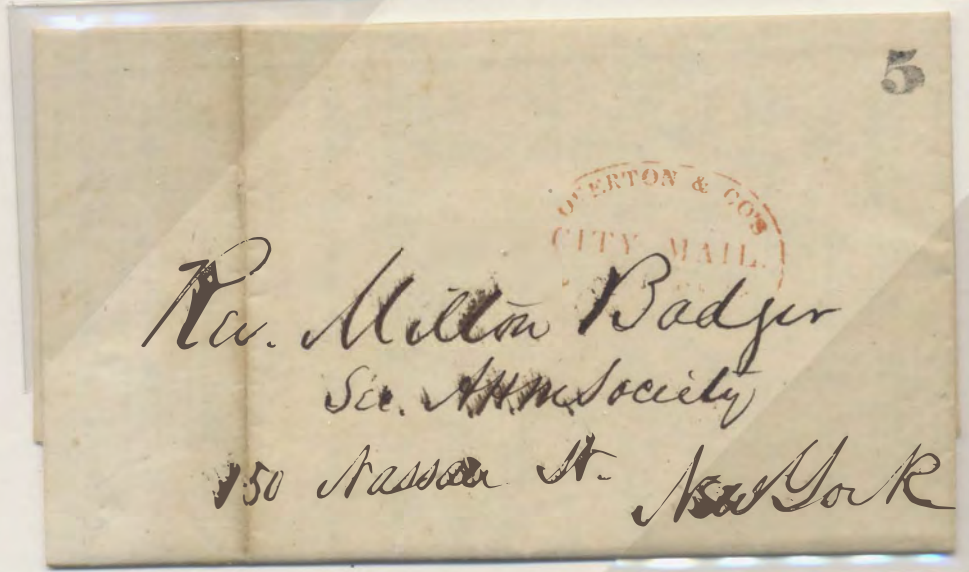 5
OVERTON & CO'S
CITY MAIL.
Rev. Milton Badger
Sec. AHM Society
150 Nassau St.
New York